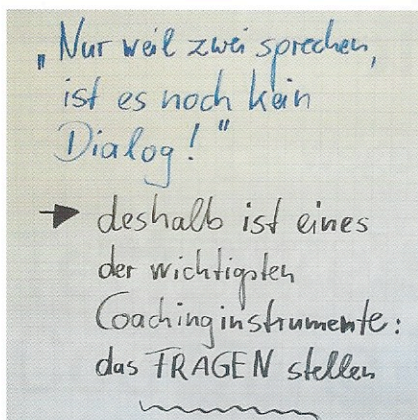 „Nur weil zwei sprechen,
ist es noch kein
Dialog!"
→ deshalb ist eines
der wichtigsten
Coachinginstrumente:
das FRAGEN stellen